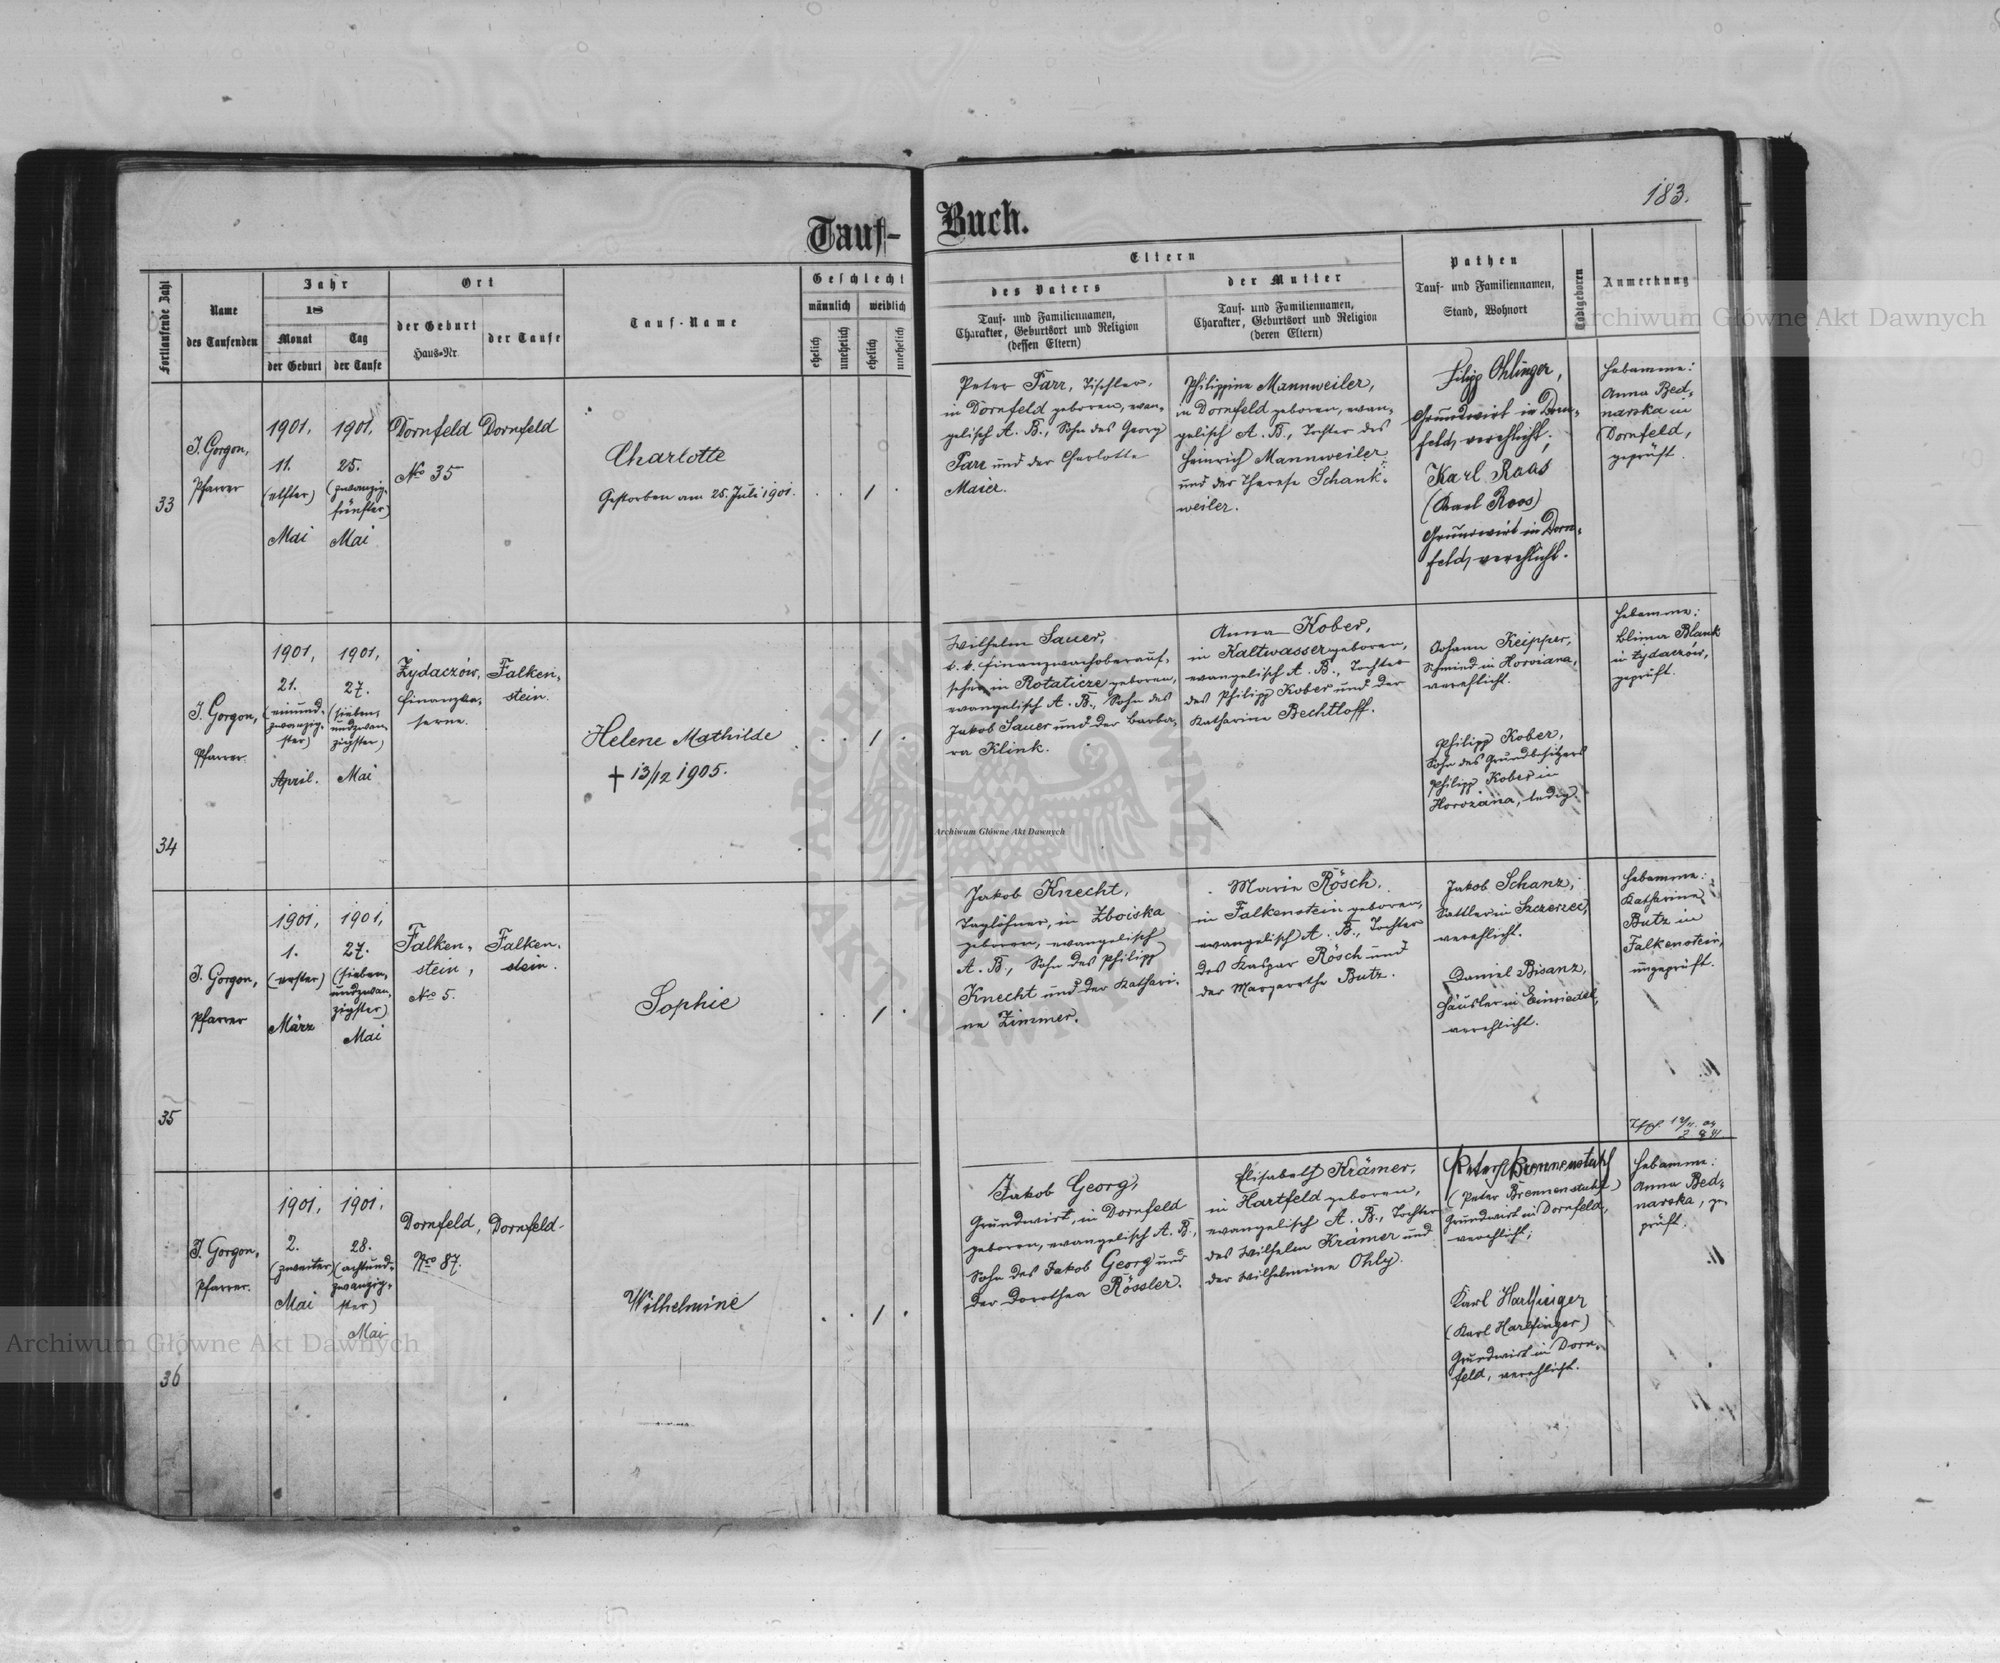 183.
Tauf-Buch.
Fortlaufende Zahl
Name
des Taufenden
Jahr
18
Monat
der Geburt
Tag
der Taufe
Ort
der Geburt
Haus-Nr.
der Taufe
Tauf-Name
Geschlecht
männlich
weiblich
ehelich
unehelich
ehelich
unehelich
Eltern
des Vaters
Tauf- und Familiennamen,
Charakter, Geburtsort und Religion
(dessen Eltern)
der Mutter
Tauf- und Familiennamen,
Charakter, Geburtsort und Religion
(deren Eltern)
Pathen
Tauf- und Familiennamen,
Stand, Wohnort
Todtgeboren
Anmerkung
33
J. Gorgon,
Pfarrer
1901,
11.
(elfter)
Mai
1901,
25.
(zwanzig-
fünfter)
Mai
Dornfeld
No 35
Dornfeld
Charlotte
Gestorben am 25. Juli 1901.
1
Peter Farr, Tischler,
in Dornfeld geboren, evan-
gelisch A. B., Sohn des Georg
Farr und der Charlotte
Maier.
Philippine Mannweiler,
in Dornfeld geboren, evan-
gelisch A. B., Tochter des
Heinrich Mannweiler
und der Therese Schank-
weiler.
Filipp Ohlinger,
Grundwirt in Dorn-
feld, verehlicht;
Karl Raas
(Karl Roos)
Grundwirt in Dorn-
feld, verehlicht.
Hebamme:
Anna Bed-
narska in
Dornfeld,
geprüft.
34
J. Gorgon,
Pfarrer.
1901,
21.
(einund-
zwanzig-
ster)
April.
1901,
27.
(sieben-
undzwan-
zigster)
Mai
Żydaczów,
Finanzka-
serne.
Falken-
stein.
Helene Mathilde
† 13/12 1905.
1
Wilhelm Sauer,
k. k. Finanzwachoberauf-
seher in Rotaticze geboren,
evangelisch A. B., Sohn des
Jakob Sauer und der Barba-
ra Klink.
Anna Kober,
in Kaltwasser geboren,
evangelisch A. B., Tochter
des Philipp Kober und der
Katharine Bechtloff.
Johann Keipper,
Schmied in Horożana,
verehlicht.
Philipp Kober,
Sohn des Grundbesitzers
Philipp Kober in
Horożana, ledig.
Hebamme:
Blank
in Żydaczów,
geprüft.
35
J. Gorgon,
Pfarrer
1901,
1.
(erster)
März
1901,
27.
(sieben-
undzwan-
zigster)
Mai
Falken-
stein,
No 5.
Falken-
stein.
Sophie
1
Jakob Knecht,
Taglöhner, in Zboiska
geboren, evangelisch
A. B., Sohn des Philipp
Knecht und der Kathari-
ne Zimmer.
Marie Rösch,
in Falkenstein geboren,
evangelisch A. B., Tochter
des Kaspar Rösch und
der Margarethe Butz.
Jakob Schanz,
Sattler in Szczerzec,
verehlicht.
Daniel Bisanz,
Häusler in Einsiedel,
verehlicht.
Hebamme:
Katharina
Butz in
Falkenstein,
ungeprüft.
36
J. Gorgon,
Pfarrer.
1901,
2.
(zweiter)
Mai
1901,
28.
(achtund-
zwanzig-
ster)
Mai
Dornfeld,
Nro 87.
Dornfeld.
Wilhelmine
1
Jakob Georg,
Grundwirt, in Dornfeld
geboren, evangelisch A. B.,
Sohn des Jakob Georg und
der Dorothea Rössler.
Elisabeth Krämer,
in Hartfeld geboren,
evangelisch A. B., Tochter
des Wilhelm Krämer und
der Wilhelmine Ohly.
Peter Brennenstuhl
(Peter Brennenstuhl)
Grundwirt in Dornfeld,
verehlicht;
Karl Harlfinger
(Karl Harlfinger)
Grundwirt in Dorn-
feld, verehlicht.
Hebamme:
Anna Bed-
narska, ge-
prüft.
Archiwum Główne Akt Dawnych
Archiwum Główne Akt Dawnych
Archiwum Główne Akt Dawnych